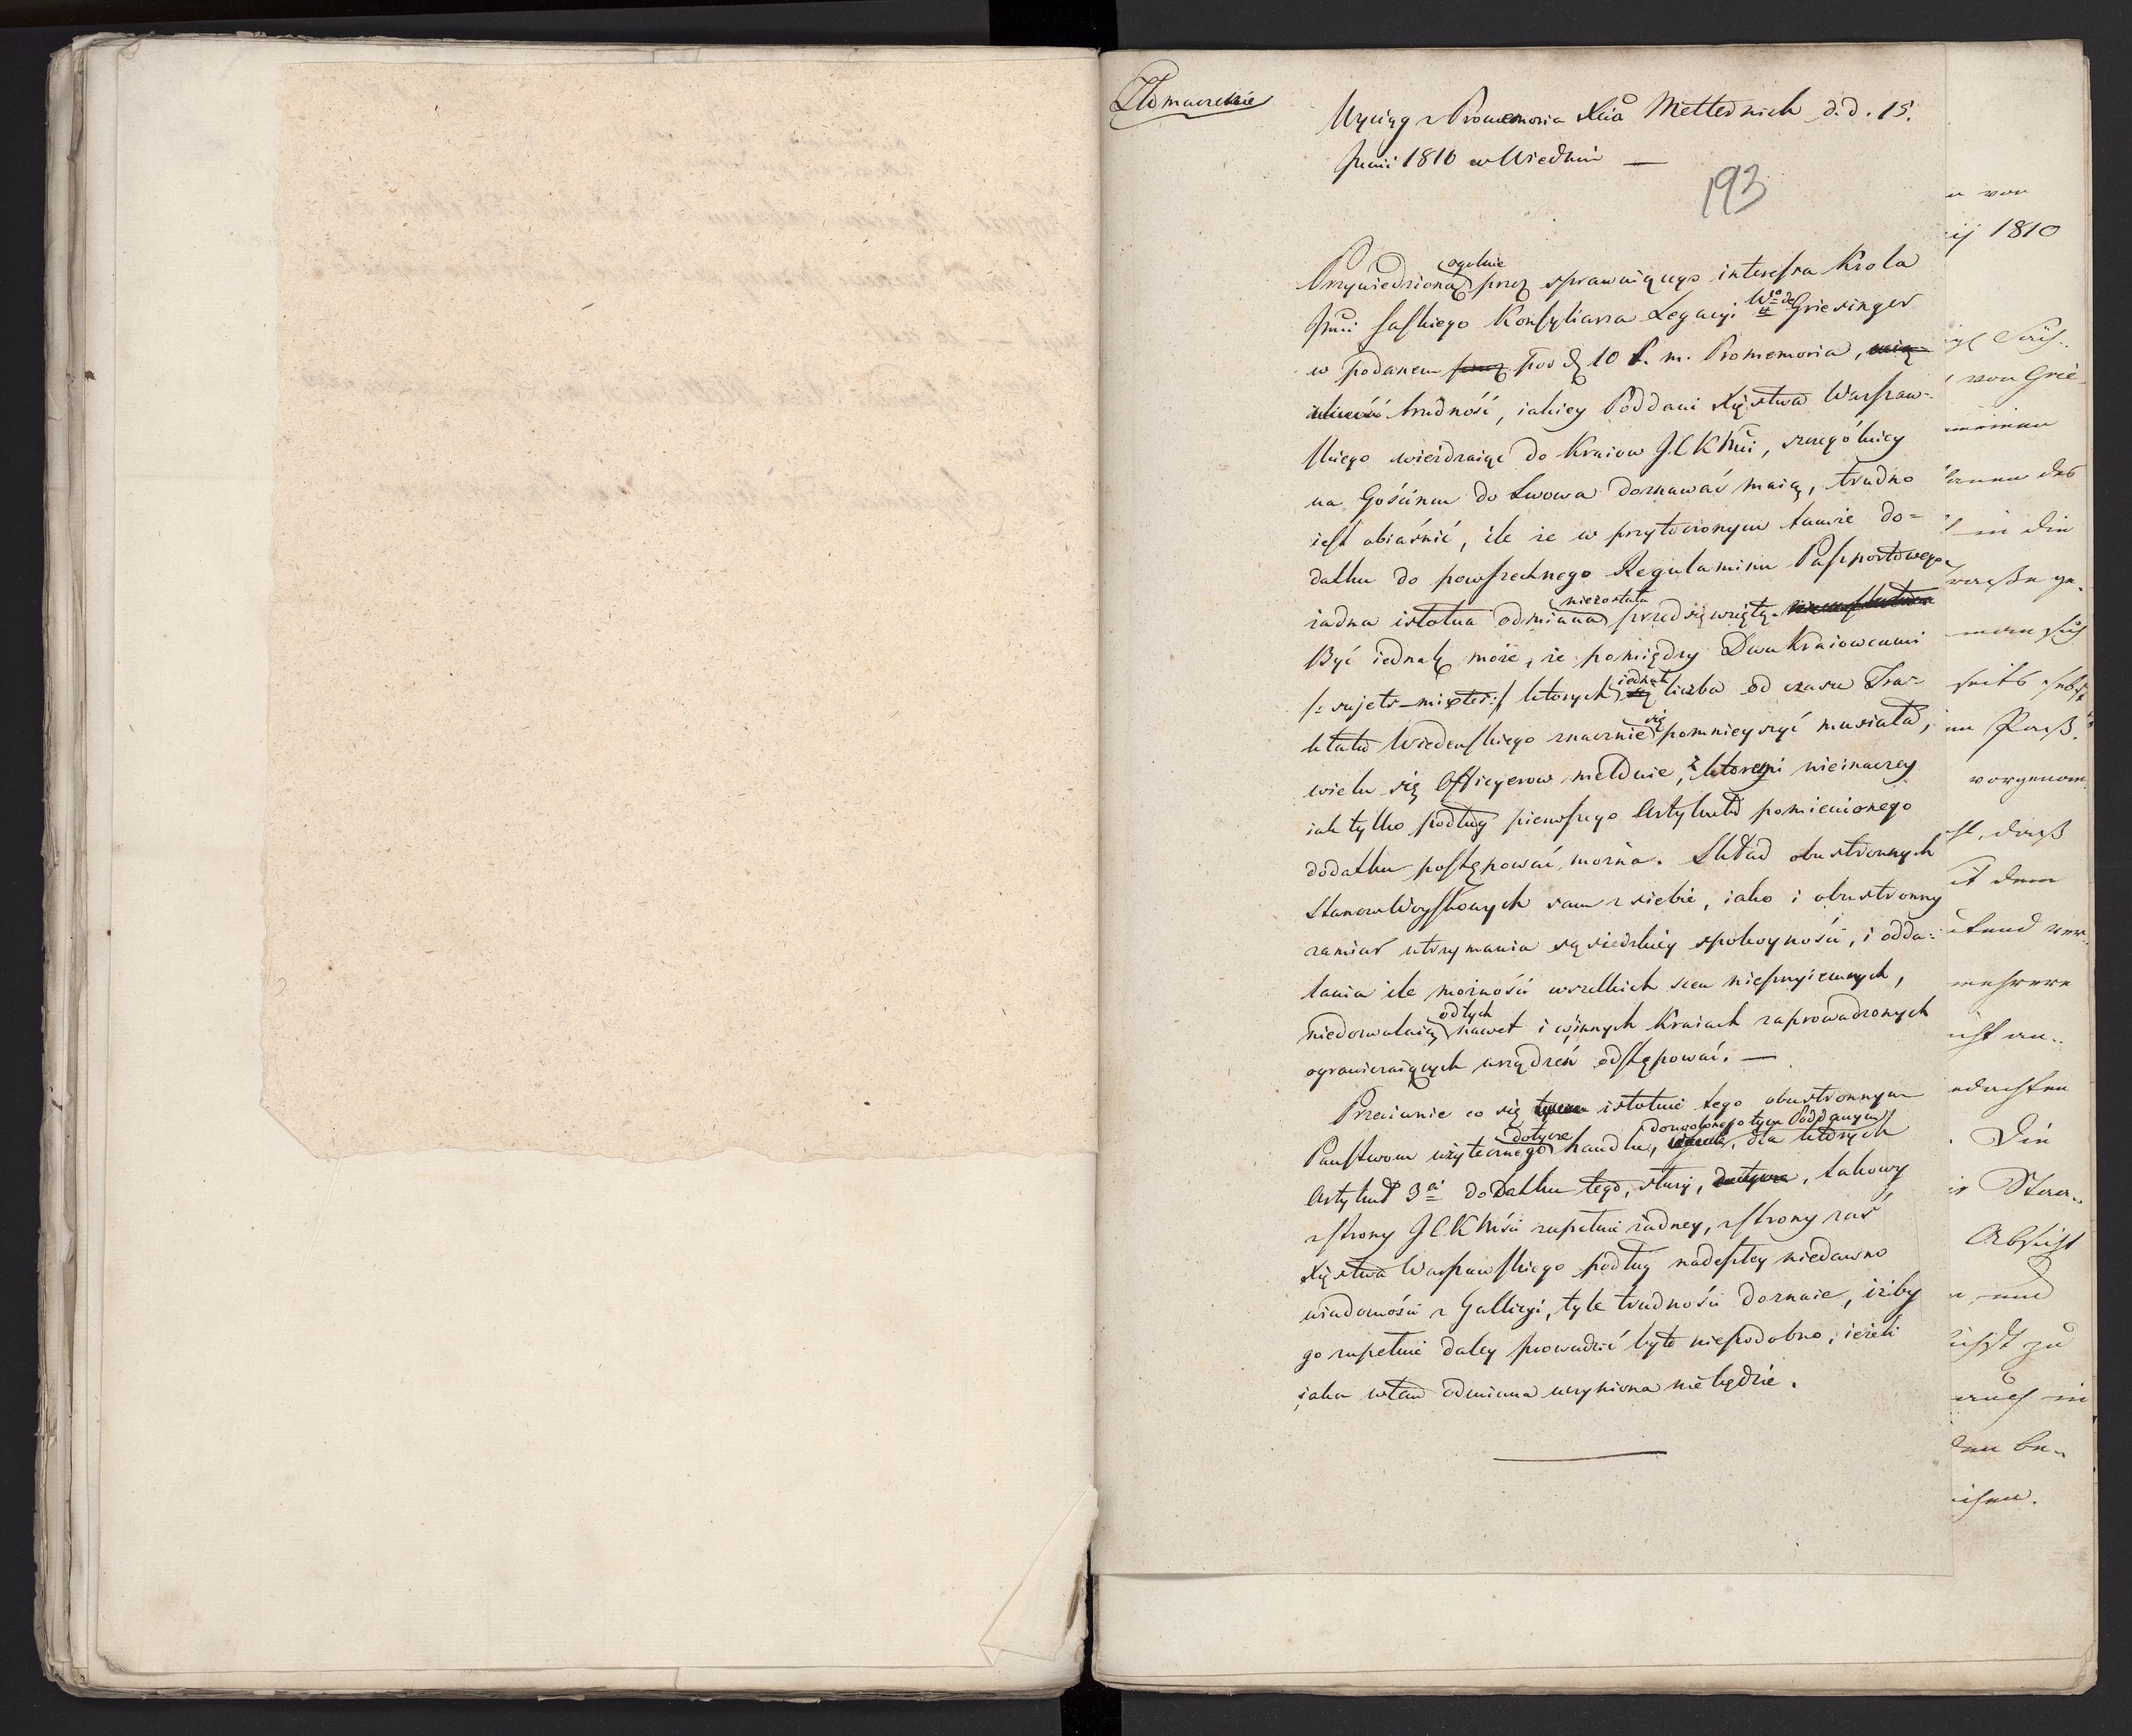 Tłomaczenie
Wyciąg z Promemoria Xcia Metternich d.d. 15.
Junii 1810 w Wiedniu —
193
Przywiedziona ogulnie przez sprawuiącego interessa Krola
Jmci Saskiego Konsyliarza Legacyi Wgo de Griesinger
w podanem przez pod d 10 t. m. Promemoria,
trudność, iakiey Poddani Xięstwa Warszaw-
skiego wieżdzaiąc do Kraiow JCKMci, szczególniey
na Gościncu do Lwowa doznawać maią, trudno
iest obiaśnić, ile że w przytoczonym tamże do=
datku do powszechnego Regulaminu Paszportowego
żadna istotna odmiana niezostała przedsięwziętą.
Być iednak może, że pomiędzy Dwukraiowcami
/: sujets-mixtes :/ ktorych iednak liczba od czasu Trak-
tatu Wiedenskiego znacznie się pomnieyszyć musiała,
wielu się Officyerow melduie, z ktoremi nieinaczey
iak tylko podług pierwszego Artykułu pomienionego
dodatku postępować można. Skład obustronnych
Stanow Woyskowych sam z siebie, iako i obustronny
zamiar utrzymania sąsiedzkiey spokoyności, i odda=
lania ile możności wszelkich scen nieprzyiemnych,
niedozwalaią od tych nawet i w innych Kraiach zaprowadzonych
ograniczaiących urządzeń odstępować. —
Przeciwnie co się istotnie tego obustronnym
Panstwom użytecznego dotycze handlu, dozwolonego tym Poddanym, dla ktorych
Artykuł 3ci dodatku tego, służy, takowy
z strony JCKMści zupełnie żadney, z strony zaś
Xięstwa Warszawskiego podług nadeszłey niedawno
wiadomości z Gallicyi, tyle trudności doznaie, iżby
go zupełnie daley prowadzić było niepodobno, ieżeli
iaka w tem odmiana uczyniona nie będzie.
von
1810
von Grie-
des
in die
vorgenom
daß
dem
mehrere
Die
Absicht
und
zu
auch in